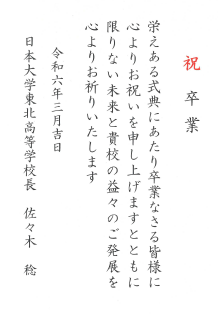 祝 卒業
栄えある式典にあたり卒業なさる皆様に
心よりお祝いを申し上げますとともに
限りない未来と貴校の益々のご発展を
心よりお祈りいたします
令和六年三月吉日
日本大学東北高等学校長 佐々木 稔